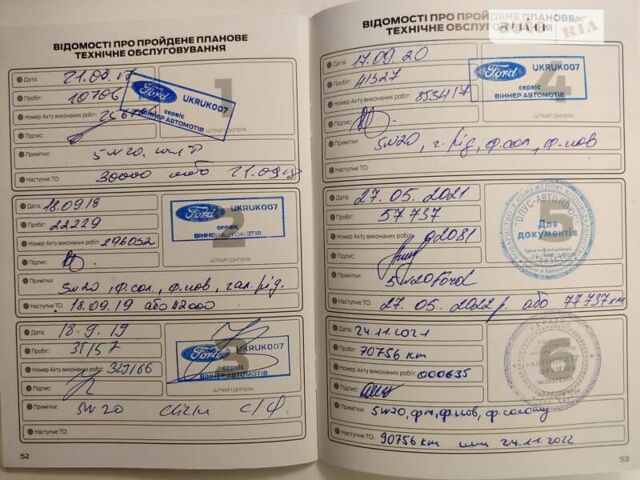 ВІДОМОСТІ ПРО ПРОЙДЕНЕ ПЛАНОВЕ
ТЕХНІЧНЕ ОБСЛУГОВУВАННЯ
Дата: 21.09.17
Пробіг: 10706
Номер Акту виконаних робіт:
Ford UKRUK007
сервіс
ВІННЕР АВТОМОТІВ
1
Підпис:
ШТАМП ДИЛЕРА
Примітки: 5w20
Наступне ТО: 30000 або 21.09.18
Дата: 18.09.18
Пробіг: 22229
Номер Акту виконаних робіт: 296052
Ford UKRUK007
сервіс
ВІННЕР АВТОМОТІВ
2
Підпис:
ШТАМП ДИЛЕРА
Примітки: 5w20, ф.сал, ф.пов, гал.рід.
Наступне ТО: 18.09.19 або 42000
Дата: 18.9.19
Пробіг: 31157
Номер Акту виконаних робіт: 329166
Ford UKRUK007
сервіс
ВІННЕР АВТОМОТІВ
3
Підпис:
ШТАМП ДИЛЕРА
Примітки: 5w20
Наступне ТО:
52
ВІДОМОСТІ ПРО ПРОЙДЕНЕ ПЛАНОВЕ
ТЕХНІЧНЕ ОБСЛУГОВУВАННЯ
auto RIA
Дата: 17.09.20
Пробіг: 41527
Номер Акту виконаних робіт: 353417
Ford UKRUK007
сервіс
ВІННЕР АВТОМОТІВ
4
Підпис:
Примітки: 5w20, г.рід, ф.сал, ф.пов
Наступне ТО:
Дата: 27.05.2021
Пробіг: 57737
Номер Акту виконаних робіт: 92081
Для
документів
5
Підпис:
Примітки: 5w20 Ford
Наступне ТО: 27.05.2022р. або 77737 км
Дата: 24.11.2021
Пробіг: 70756 км
Номер Акту виконаних робіт: 000635
6
Підпис:
Примітки: 5w20, фм, ф.пов, ф.салону
Наступне ТО: 90756 км или 24.11.2022
53